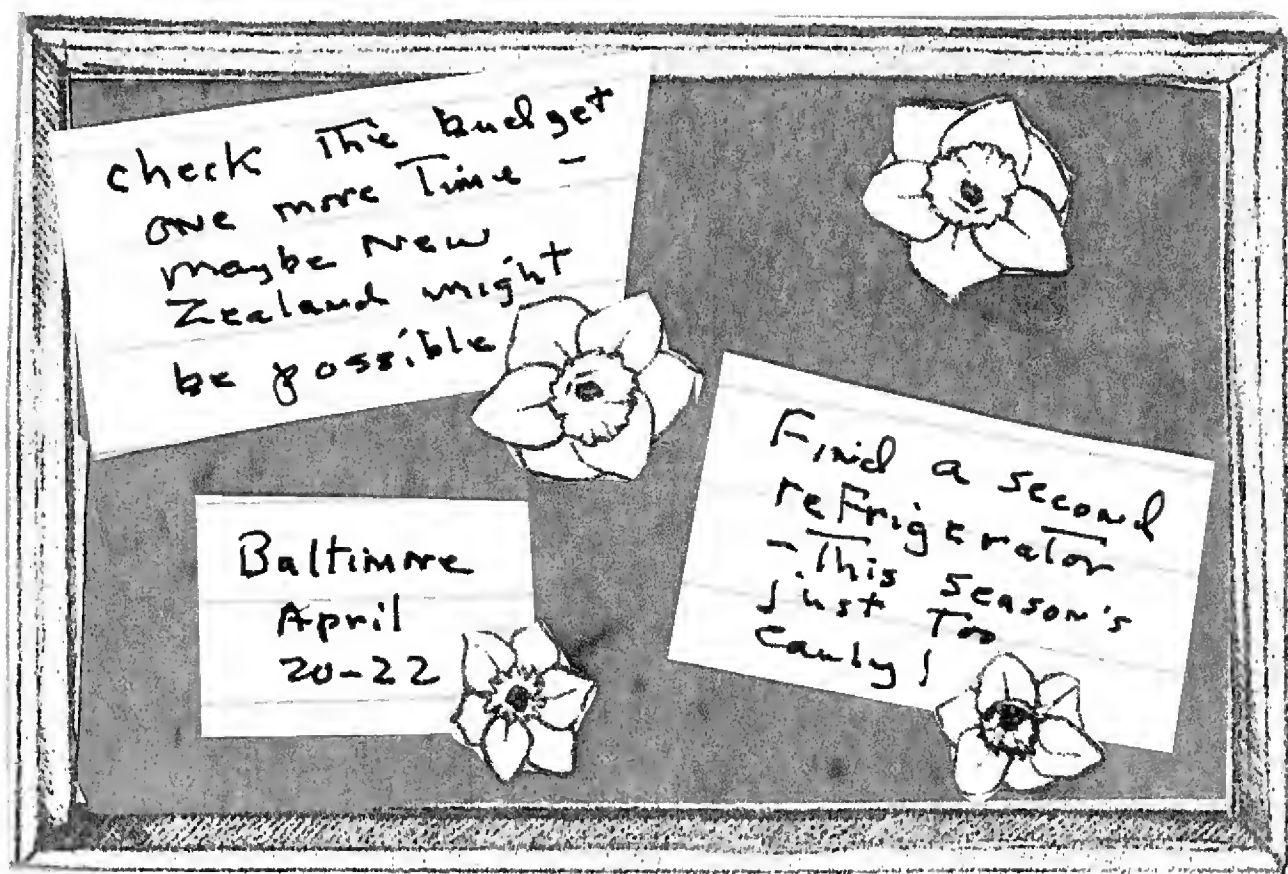 check the budget
one more Time -
maybe New
Zealand might
be possible
Baltimore
April
20-22
Find a second
reFrigerator
- This season's
just Too
early!